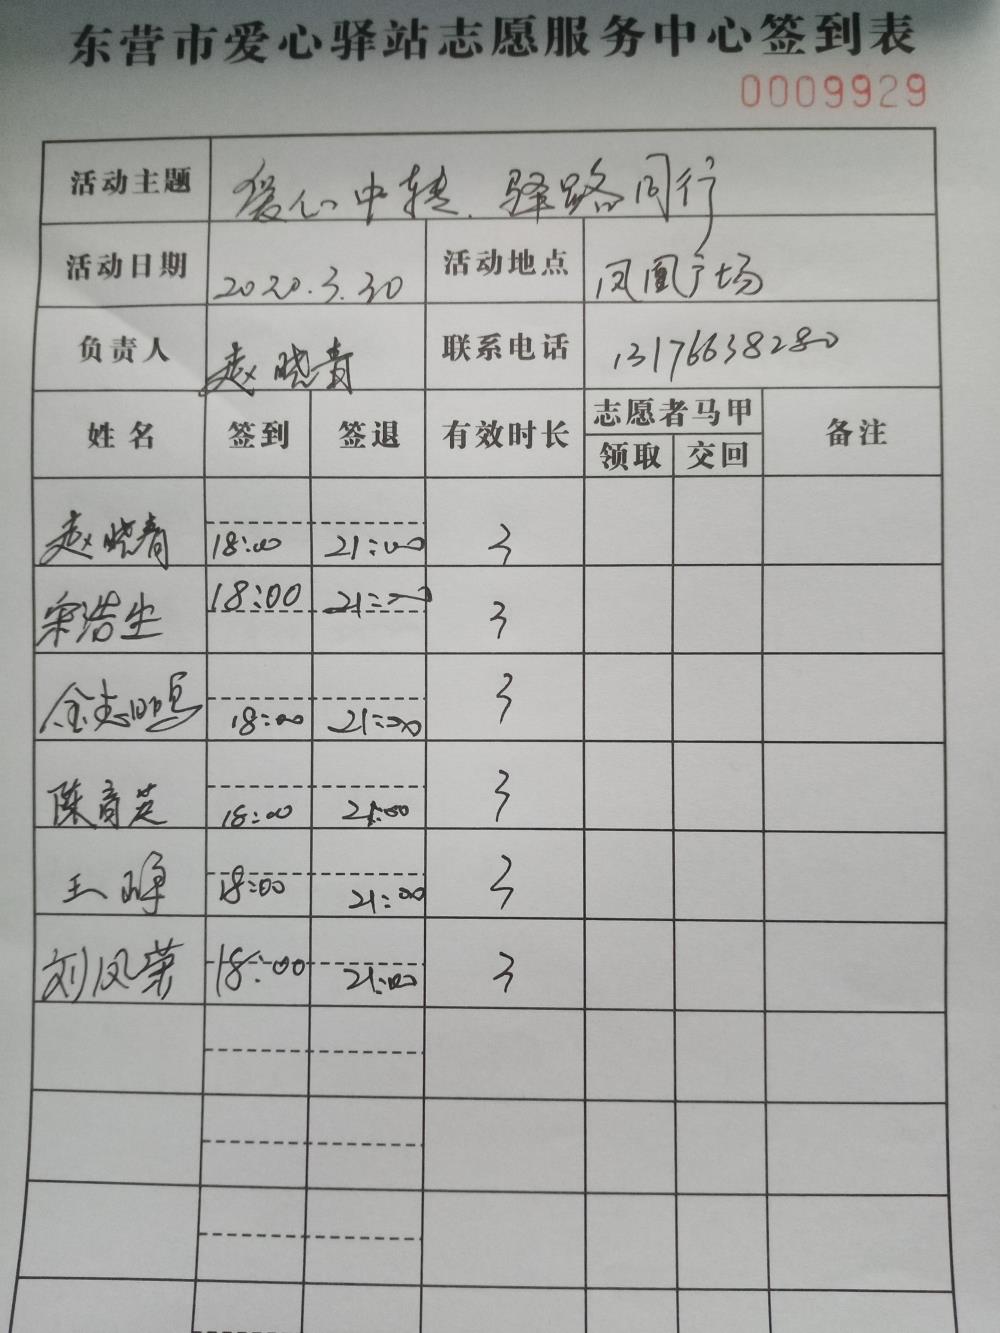 东营市爱心驿站志愿服务中心签到表
0009929
活动主题 爱心中转、驿路同行
活动日期 2020.3.30 活动地点 凤凰广场
负责人 赵晓青 联系电话 13176638280
姓名 签到 签退 有效时长 志愿者马甲 备注
领取 交回
赵晓青 18:00 21:00 3
宋浩生 18:00 21:00 3
18:00 21:00 3
陈育英 18:00 21:00 3
王峥 18:00 21:00 3
刘凤荣 18:00 21:00 3